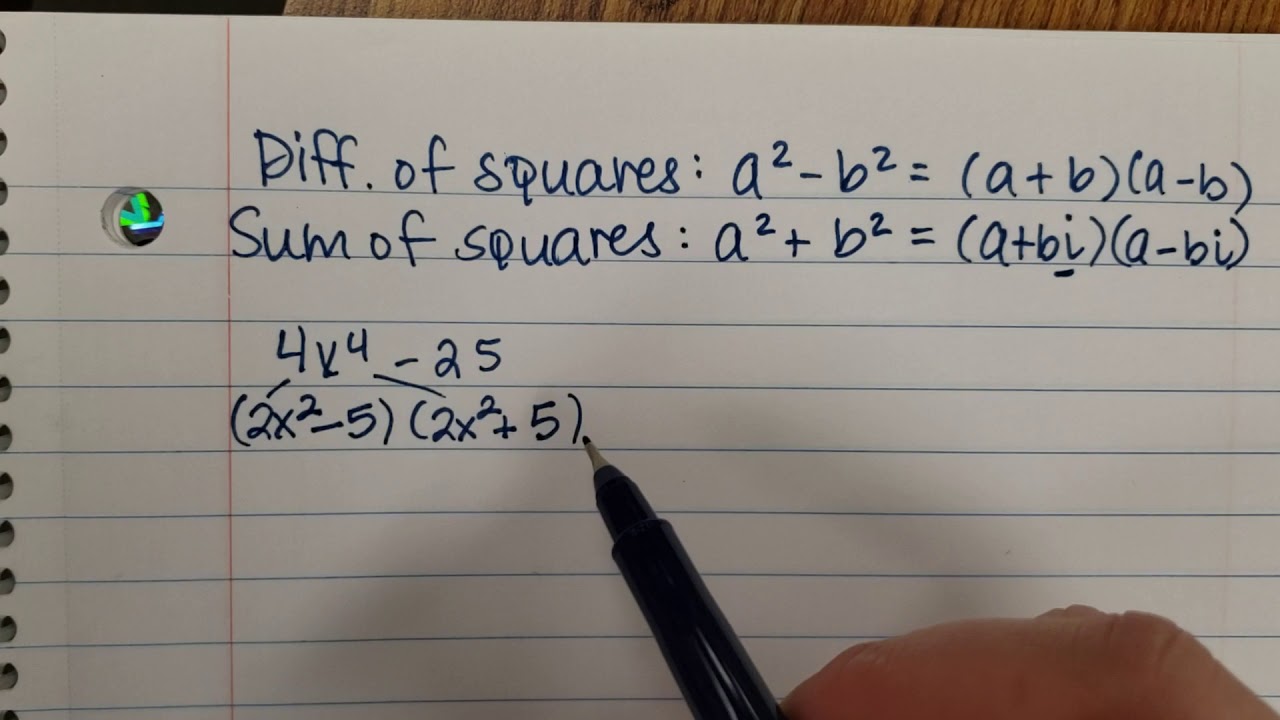 Diff. of squares: a² - b² = (a + b)(a - b)
Sum of squares: a² + b² = (a+bi)(a-bi)
4x⁴ - 25
(2x² - 5) (2x² + 5)